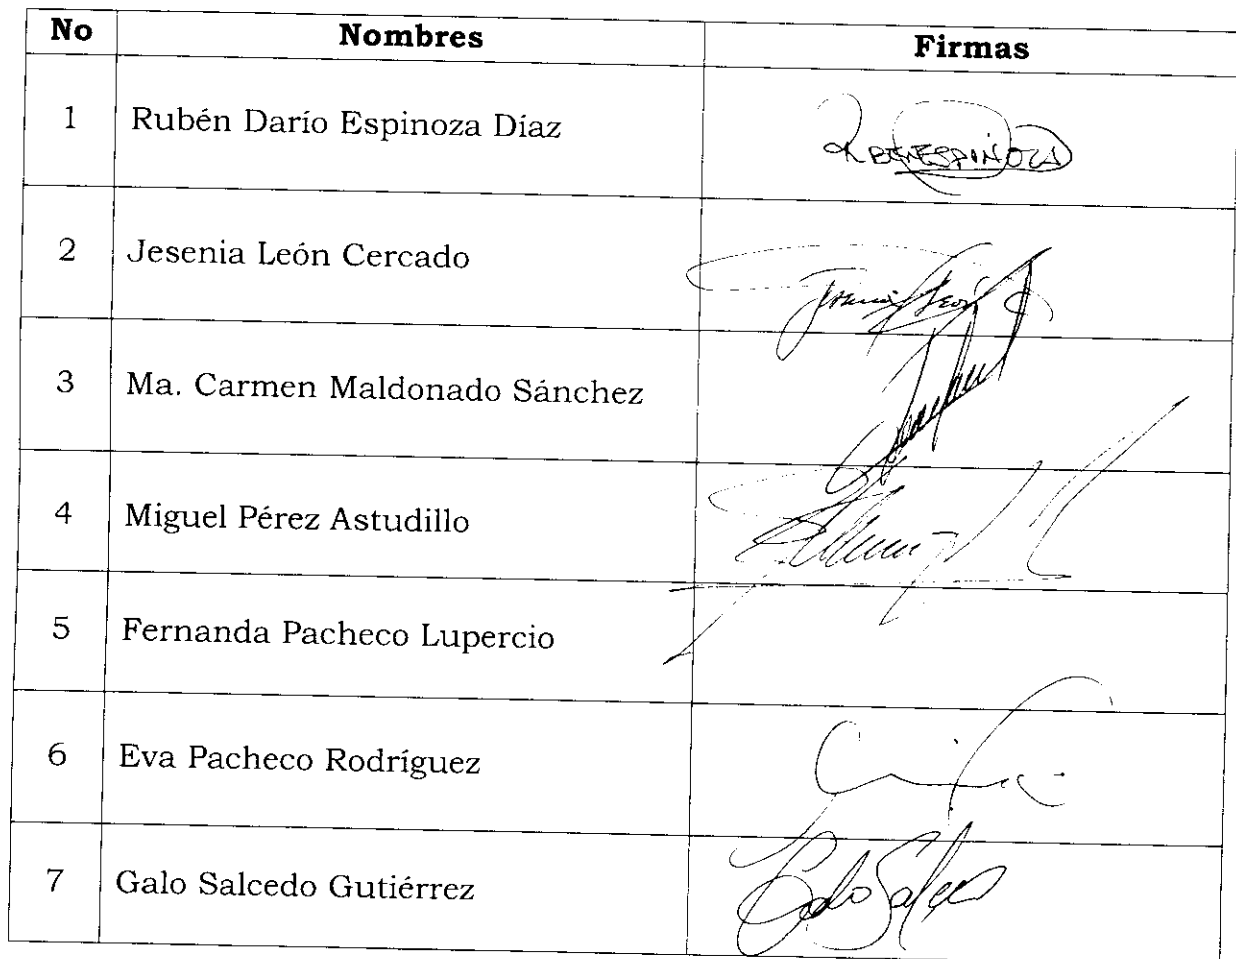 No Nombres Firmas
1 Rubén Darío Espinoza Díaz
2 Jesenia León Cercado
3 Ma. Carmen Maldonado Sánchez
4 Miguel Pérez Astudillo
5 Fernanda Pacheco Lupercio
6 Eva Pacheco Rodríguez
7 Galo Salcedo Gutiérrez